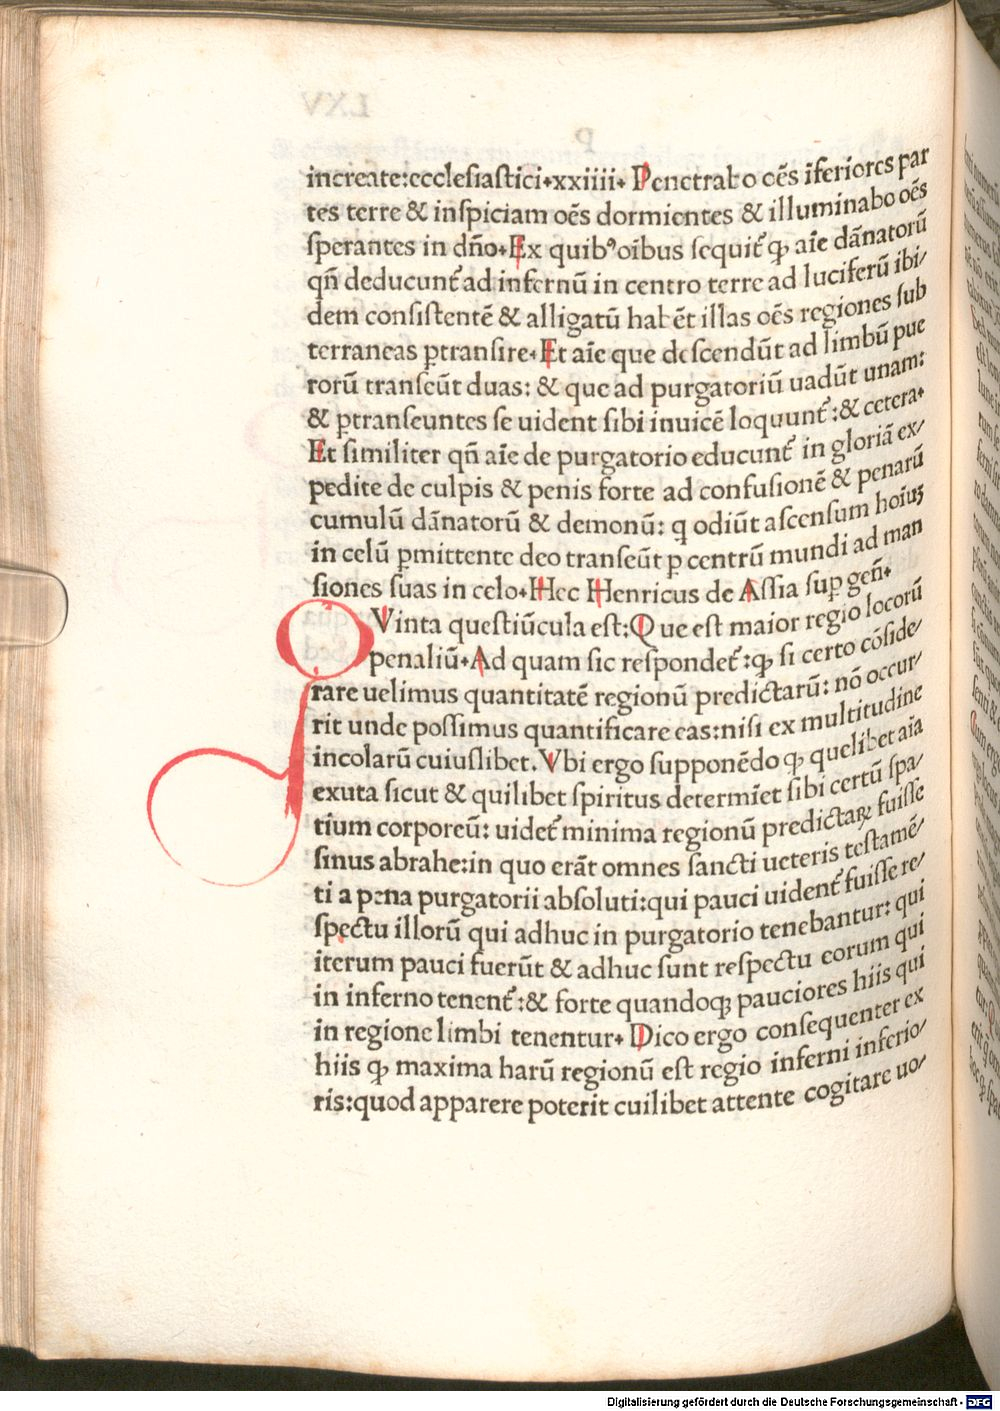 increate:ecclesiastici.xxiiii. Penetrabo oēs īferiores par
tes terre & inſpiciam oēs dormientes & illuminabo oēs
ſperantes in dn̄o.Ex quibꝰ oībus ſequit᷑ ꝙ aīe dānatorū
qn̄ deducunt᷑ ad infernū in centro terre ad luciferū ibi/
dem conſiſtentē & alligatū habēt illas oēs regiones ſub
terraneas ꝑtranſire.Et aīe que deſcendūt ad limbū pue
rorū tranſeūt duas: & que ad purgatoriū uadūt unam:
& ꝑtranſeuntes ſe uident ſibi inuicē loquunt᷑:& cetera.
Et ſimiliter qn̄ aīe de purgatorio educunt᷑ in gloriā ex/
pedite de culpis & penis forte ad confuſionē & penarū
cumulū dānatorū & demonū: q odiūt aſcenſum hoiuꝫ
in celū ꝑmittente deo tranſeūt ꝑ centrū mundi ad man
ſiones ſuas in celo.Hec Henricus de Aſſia ſuꝑ gen̄.
QVinta queſtiūcula eſt:Que eſt maior regio locorū
penaliū.Ad quam ſic reſpondet᷑:ꝙ ſi certo cōſide/
rare uelimus quantitatē regionū predictarū: nō occur/
rit unde poſſimus quantificare eas:niſi ex multitudine
incolarū cuiuſlibet.Vbi ergo ſupponēdo ꝙ quelibet aīa
exuta ſicut & quilibet ſpiritus determīet ſibi certū ſpa/
tium corporeū: uidet᷑ minima regionū predictaꝝ fuiſſe
ſinus abrahe:in quo erāt omnes ſancti ueteris teſtamē/
ti a pena purgatorii abſoluti:qui pauci uident᷑ fuiſſe re/
ſpectu illorū qui adhuc in purgatorio tenebantur: qui
iterum pauci fuerūt & adhuc ſunt reſpectu eorum qui
in inferno tenent᷑:& forte quandoqꝫ pauciores hiis qui
in regione limbi tenentur.Dico ergo conſequenter ex
hiis ꝙ maxima harū regionū eſt regio inferni inferio/
ris:quod apparere poterit cuilibet attente cogitare uo/
Digitalisierung gefördert durch die Deutsche Forschungsgemeinschaft - DFG